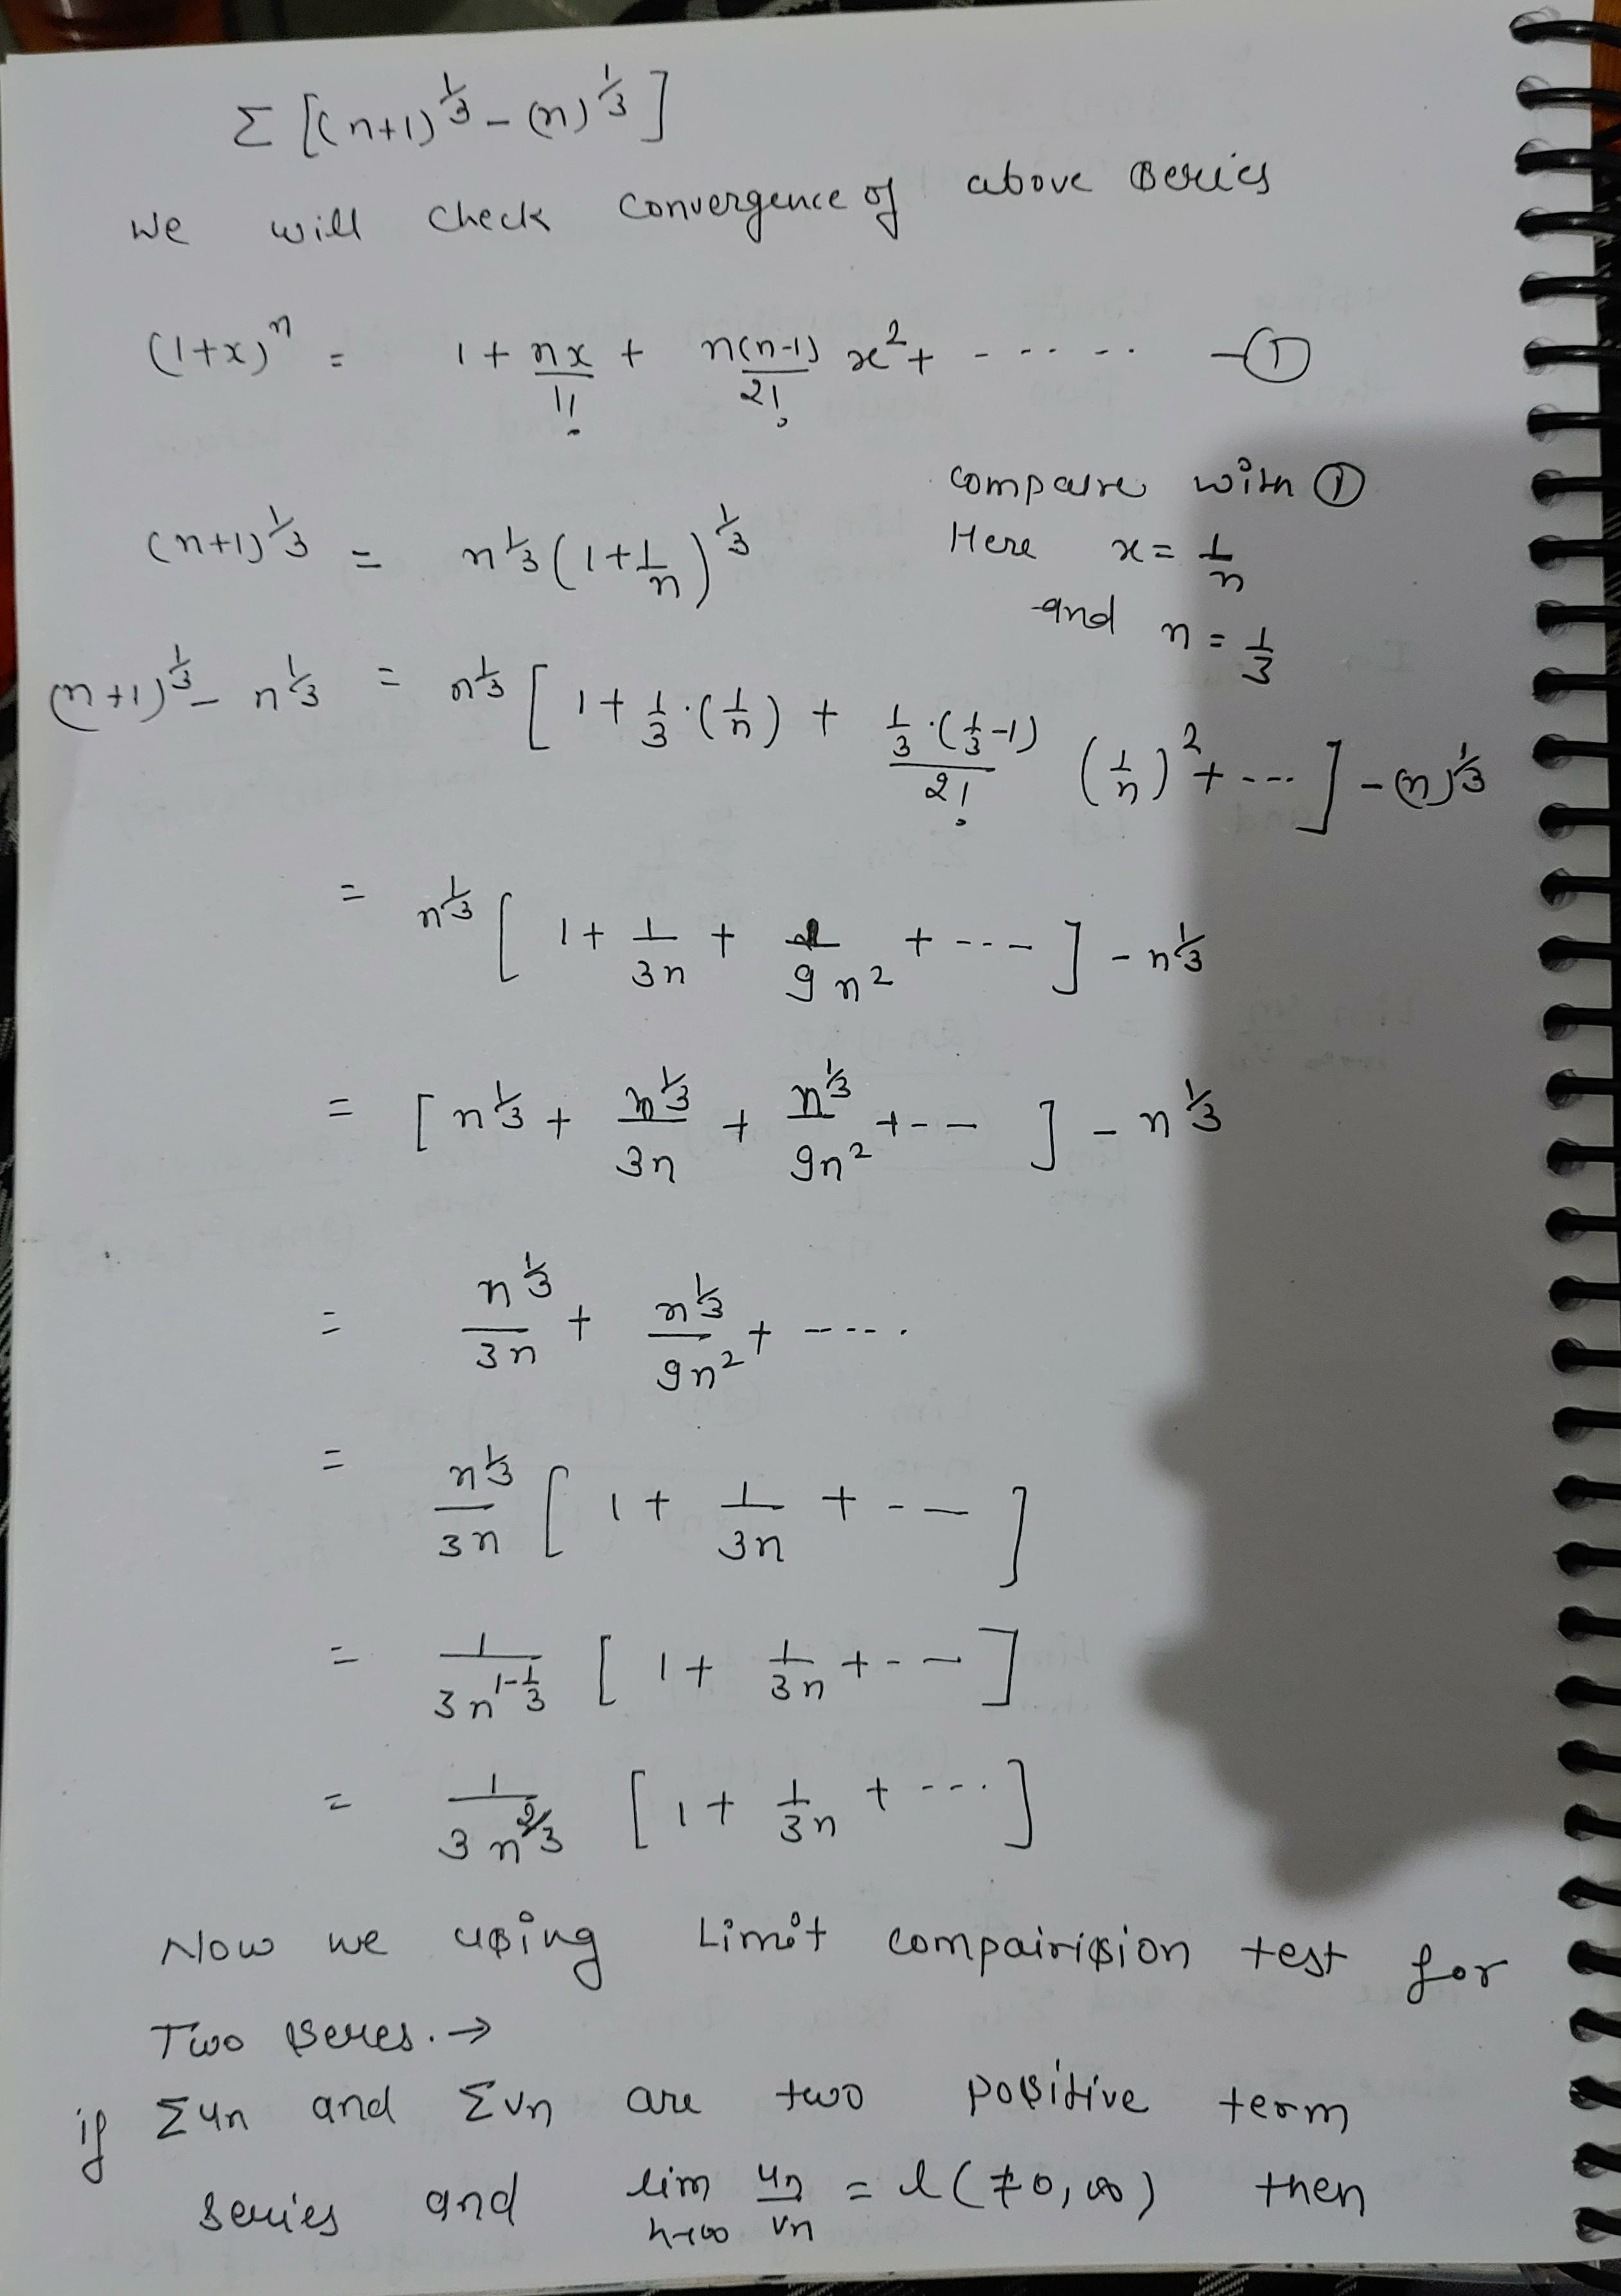 Σ [(n+1)^{1/3} - (n)^{1/3}]
we will check convergence of above series
(1+x)^n = 1 + nx/1! + n(n-1)/2! x^2 + - - - - - - ①
compare with ①
(n+1)^{1/3} = n^{1/3} (1+1/n)^{1/3} Here x = 1/n
and n = 1/3
(n+1)^{1/3} - n^{1/3} = n^{1/3} [ 1 + 1/3 · (1/n) + 1/3 · (1/3 - 1)/2! (1/n)^2 + --- ] - (n)^{1/3}
= n^{1/3} [ 1 + 1/3n + 1/9n^2 + --- ] - n^{1/3}
= [ n^{1/3} + n^{1/3}/3n + n^{1/3}/9n^2 + -- ] - n^{1/3}
= n^{1/3}/3n + n^{1/3}/9n^2 + ----.
= n^{1/3}/3n [ 1 + 1/3n + -- ]
= 1/3n^{1-1/3} [ 1 + 1/3n + -- ]
= 1/3n^{2/3} [ 1 + 1/3n + ---. ]
Now we using Limit compairision test for
Two seres. →
if Σun and Σvn are two positive term
series and lim n→∞ un/vn = l (≠0, ∞) then